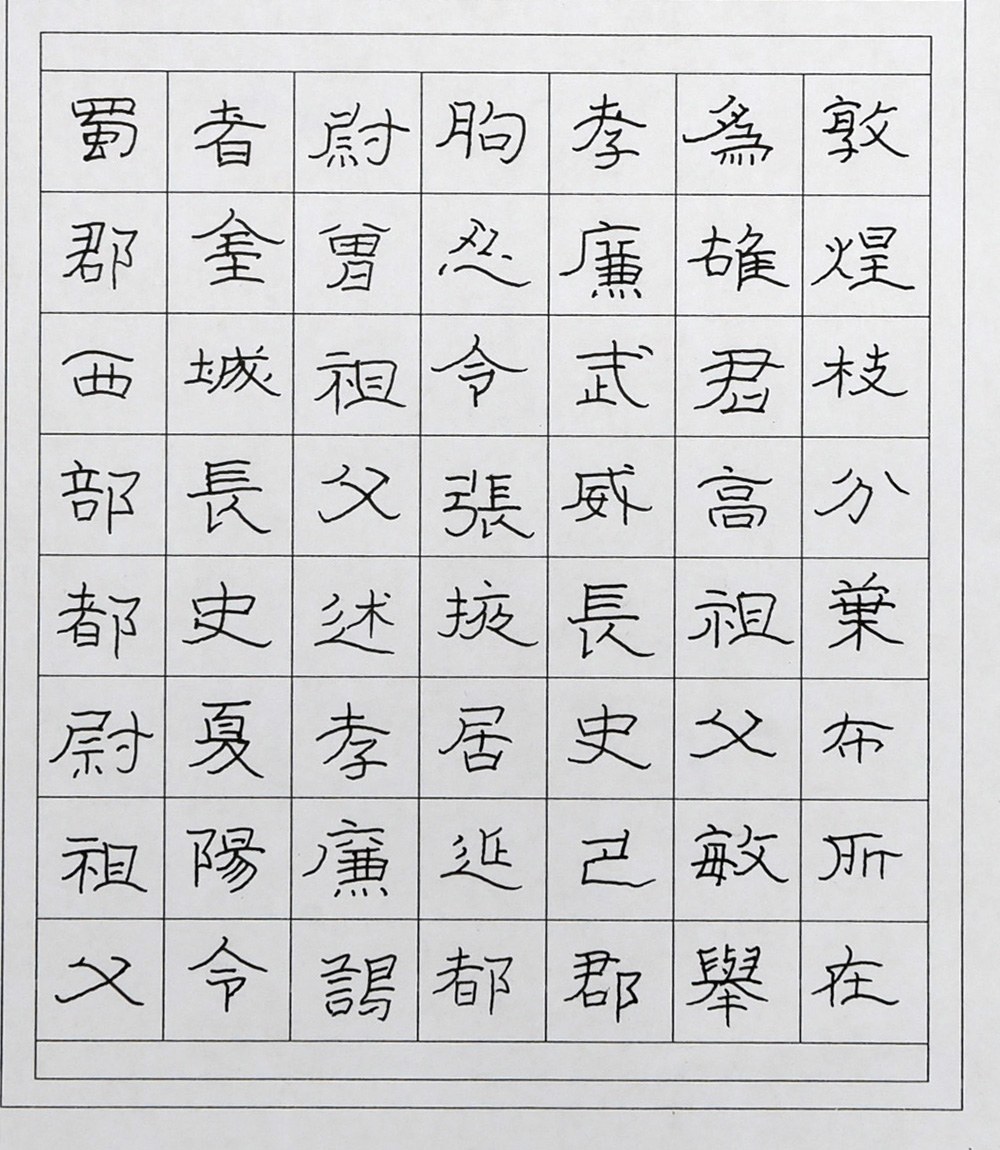 敦煌枝分葉布所在
為雄君高祖父敏舉
孝廉武威長史巴郡
朐忍令張掖居延都
尉曾祖父述孝廉謁
者金城長史夏陽令
蜀郡西部都尉祖父